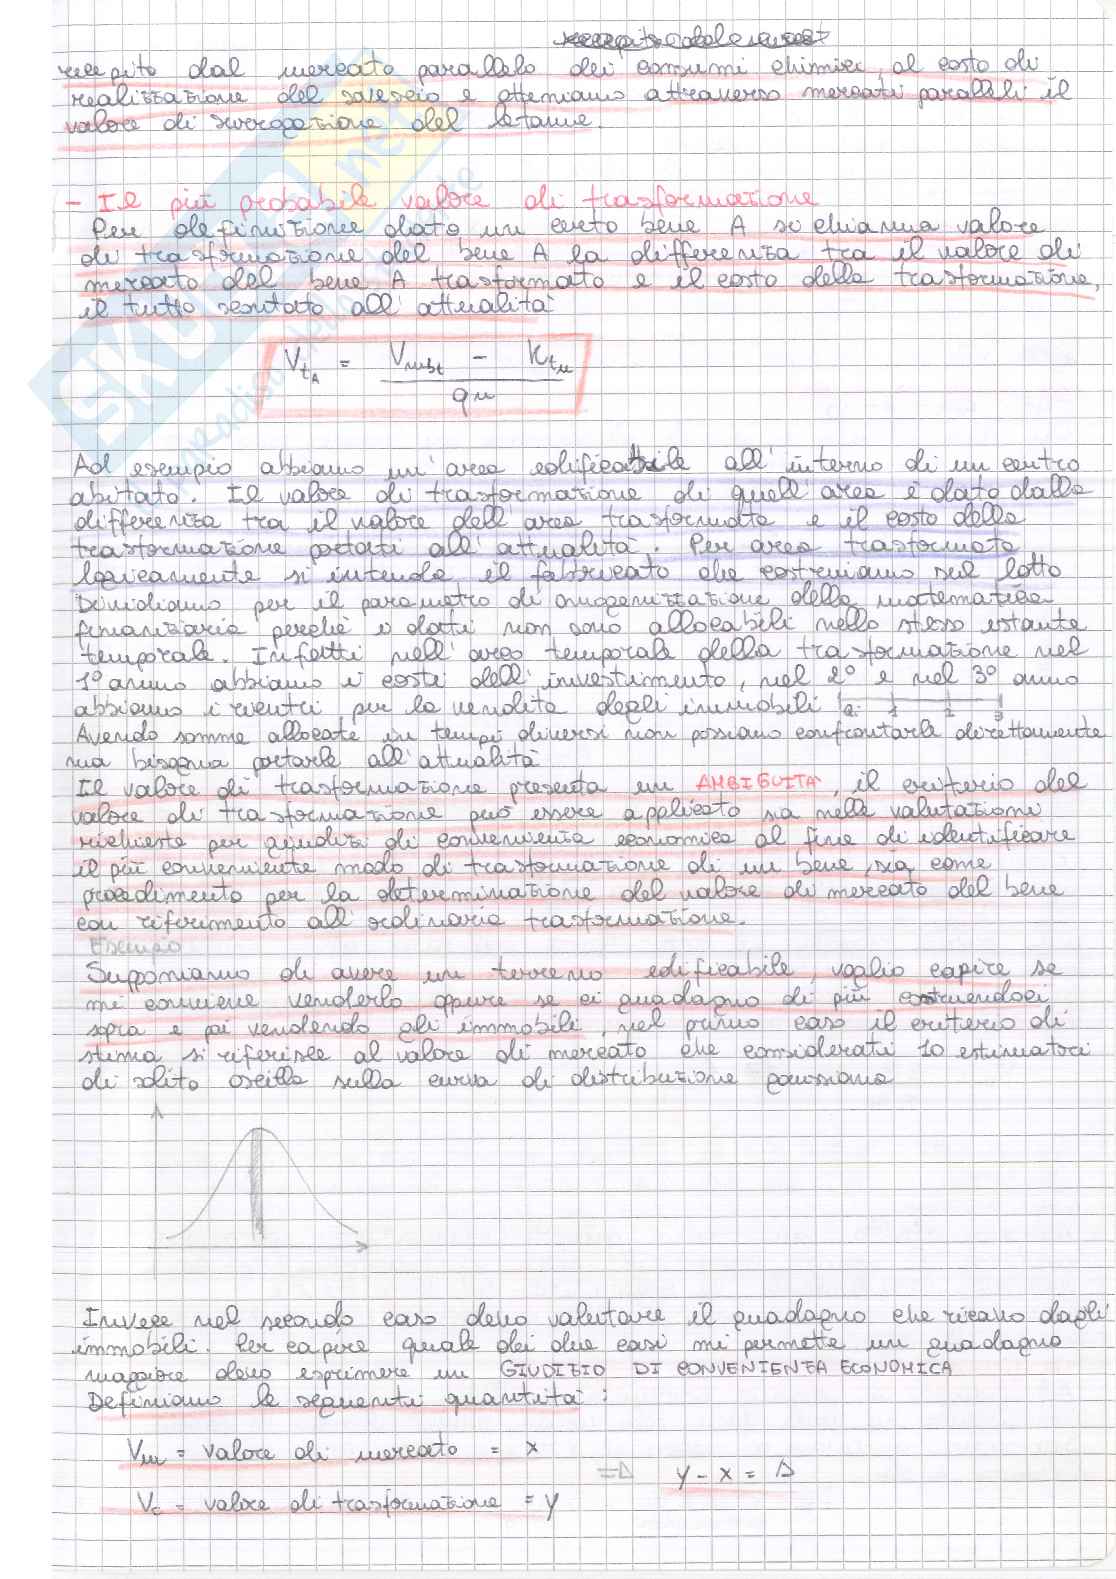 recepito dal mercato parallelo dei consumi chimici, al costo di
realizzazione del sovescio e otteniamo attraverso mercati paralleli il
valore di surrogazione del letame.
- Il più probabile valore di trasformazione
Per definizione dato un certo bene A si chiama valore
di trasformazione del bene A la differenza tra il valore di
mercato del bene A trasformato e il costo della trasformazione,
il tutto scontato all'attualità
V tA = Vmbt - Ktm
qn
Ad esempio abbiamo un'area edificabile all'interno di un centro
abitato. Il valore di trasformazione di quell'area è dato dalla
differenza tra il valore dell'area trasformata e il costo della
trasformazione portati all'attualità. Per area trasformata
logicamente si intende il fabbricato che costruiamo sul lotto
Dividiamo per il parametro di omogenizzazione della matematica
finanziaria perché i dati non sono allocabili nello stesso istante
temporale. Infatti nell'arco temporale della trasformazione nel
1° anno abbiamo i costi dell'investimento, nel 2° e nel 3° anno
abbiamo i rientri per la vendita degli immobili 1 2 3
Avendo somme allocate in tempi diversi non possiamo confrontarle direttamente
ma bisogna portarle all'attualità
Il valore di trasformazione presenta un AMBIGUITÀ, il criterio del
valore di trasformazione può essere applicato sia nelle valutazioni
richieste per giudizi di convenienza economica al fine di identificare
il più conveniente modo di trasformazione di un bene, sia come
procedimento per la determinazione del valore di mercato del bene
con riferimento all'ordinaria trasformazione.
Esempio
Supponiamo di avere un terreno edificabile, voglio capire se
mi conviene venderlo oppure se ci guadagno di più costruendoci
sopra e poi vendendo gli immobili, nel primo caso il criterio di
stima si riferisce al valore di mercato che considerati 10 estimatori
di solito oscilla sulla curva di distribuzione gaussiana
Invece nel secondo caso devo valutare il guadagno che ricavo dagli
immobili. Per capire quale dei due casi mi permette un guadagno
maggiore devo esprimere un GIUDIZIO DI CONVENIENZA ECONOMICA
Definiamo le seguenti quantità:
Vm = valore di mercato = x
=> y - x = Δ
Vt = valore di trasformazione = y